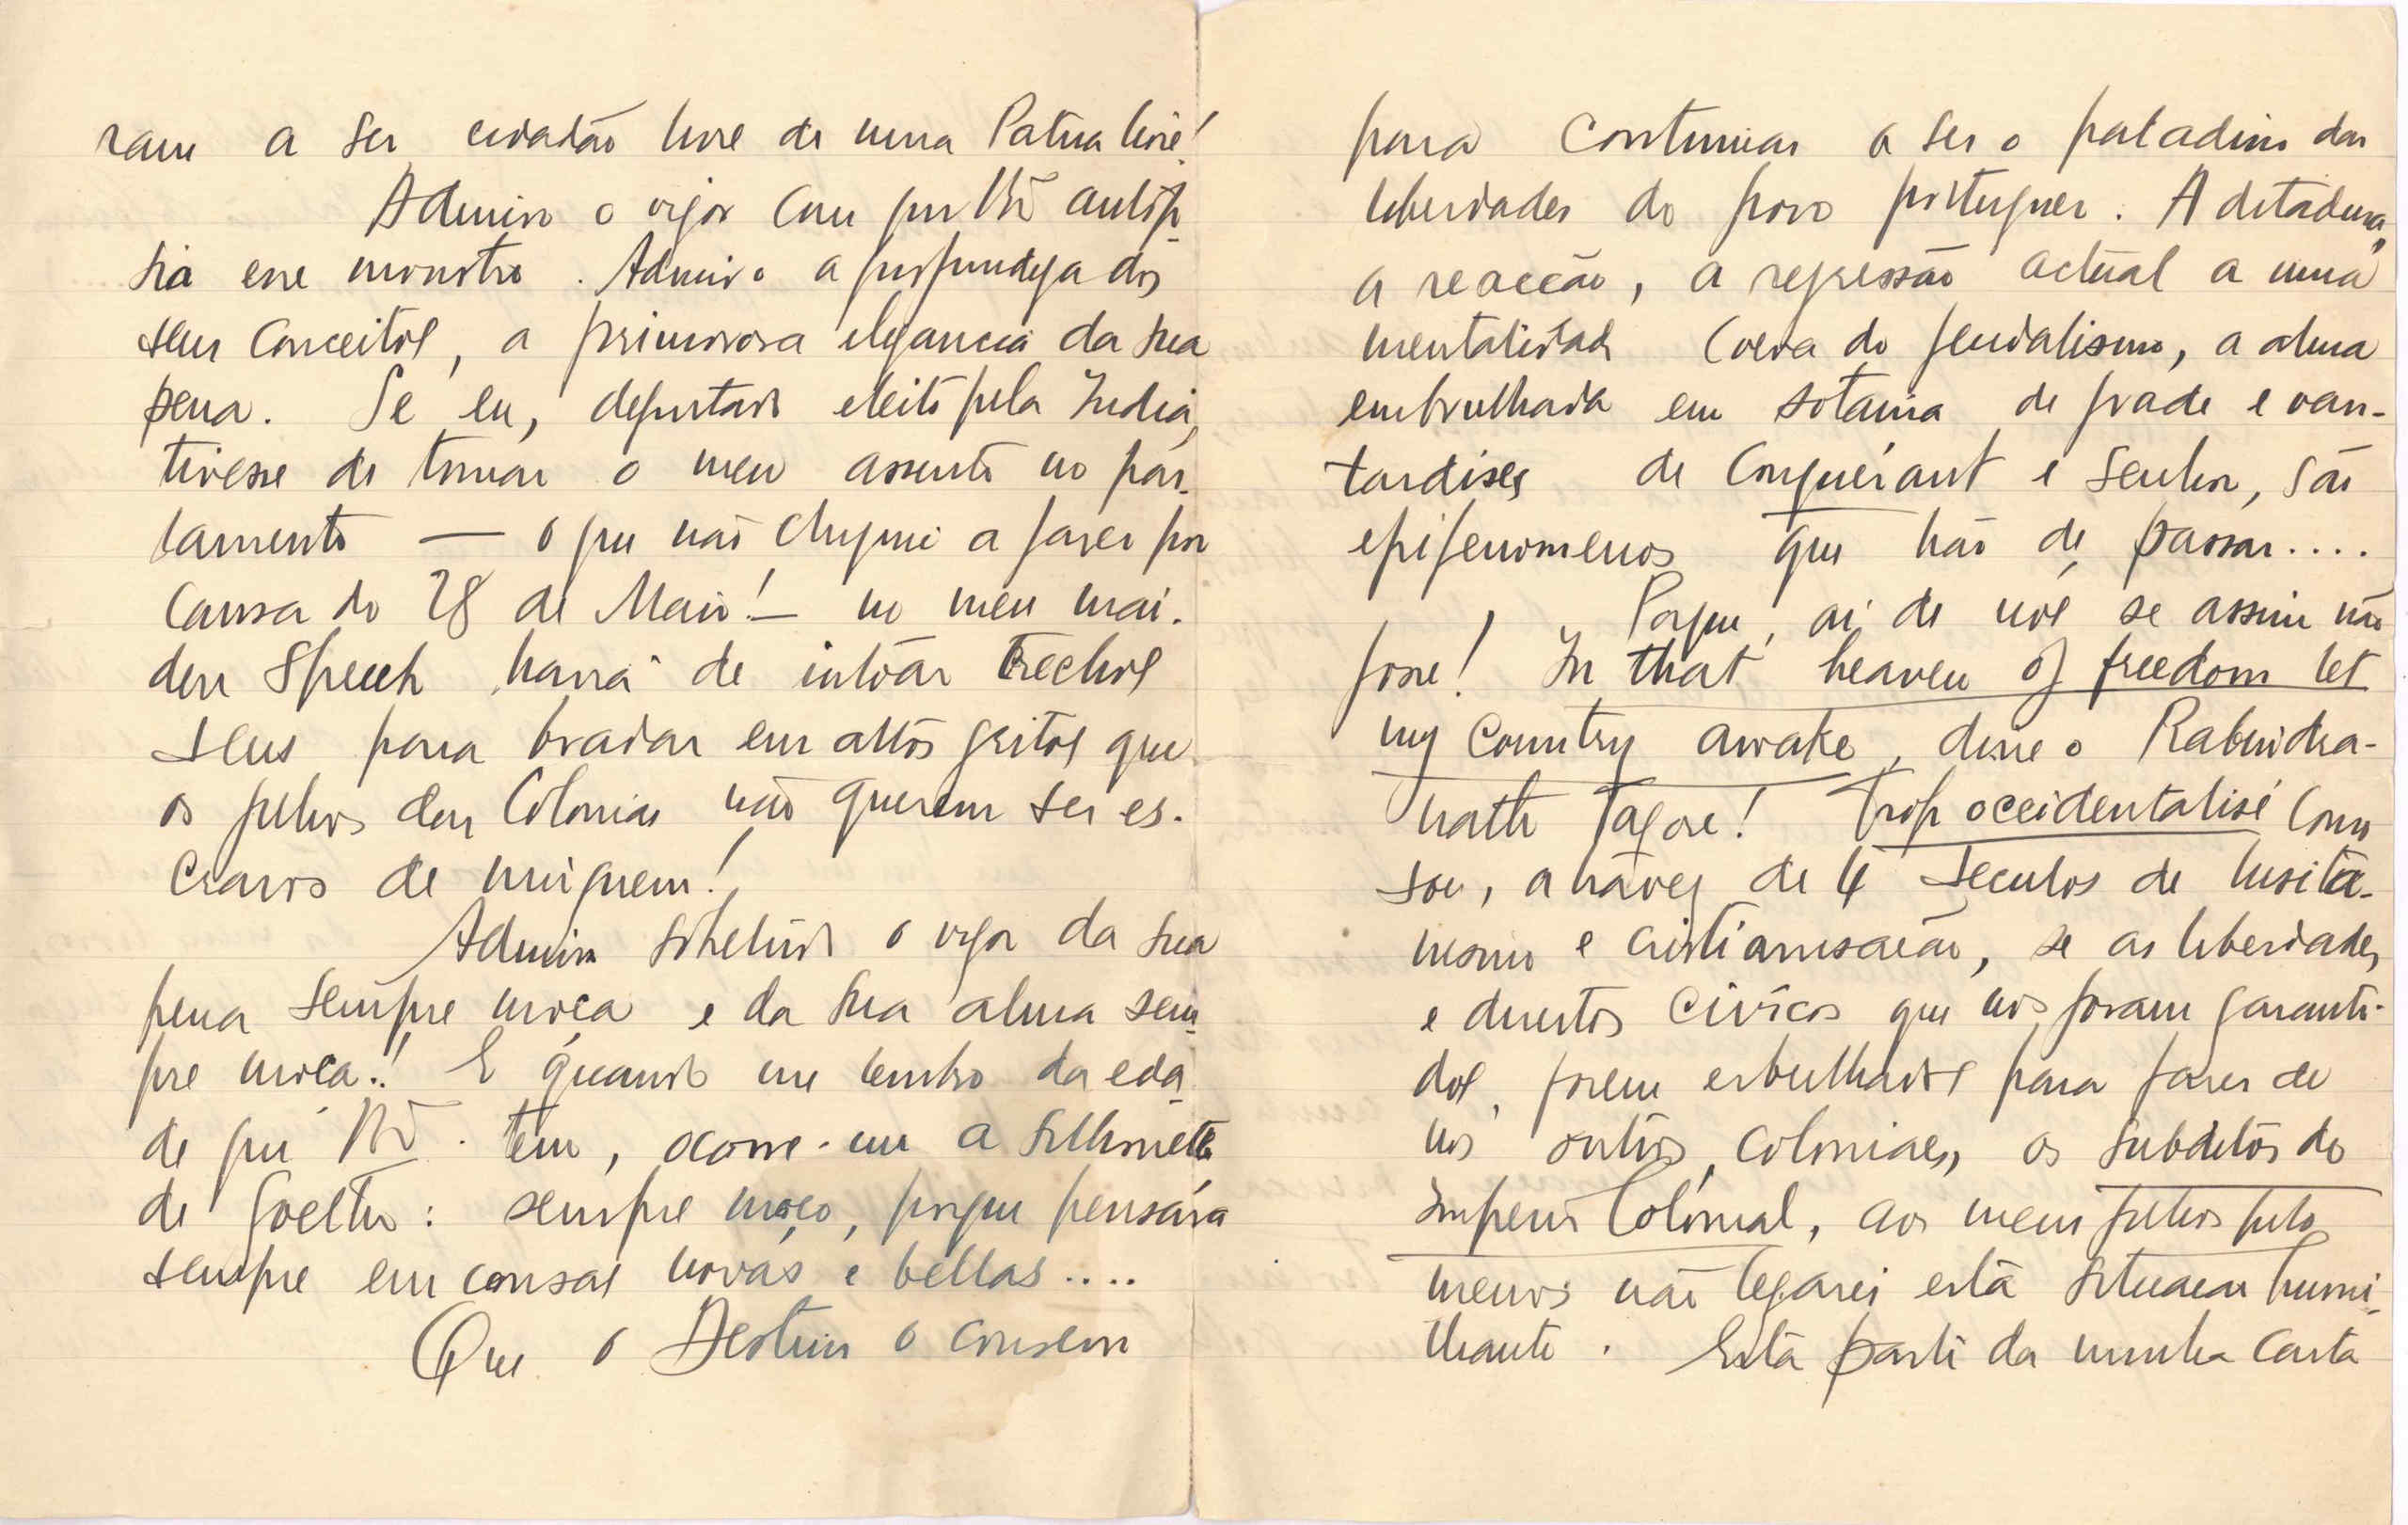 ram a ser cidadão livre de uma Patria livre!
Admiro o vigor com que VExª
esse monstro. Admiro a profundeza dos
seus conceitos, a primorosa elegancia da sua
pena. Se eu, deputado eleito pela India,
tivesse de tomar o meu assento no par-
lamento — o que não cheguei a fazer por
causa do 28 de Maio! — no meu mai-
den speech havia de intoar trechos
seus para bradar em altos gritos que
os filhos das Colonias não querem ser es-
cravos de ninguem!
Admiro sobretudo o vigor da sua
pena sempre moça e da sua alma sem-
pre moça!! E quando me lembro da eda-
de que VExª tem, ocorre-me a silhouette
de Goethe: sempre moço, porque pensára
sempre em cousas novas e bellas....
Que o Destino o conserve
para continuar a ser o paladino das
liberdades do povo portuguez. A ditadura,
a reacção, a regressão actual a uma
mentalidade coeva do feudalismo, a alma
embrulhada em sotaina de frade e van-
tardises de Conquérant e Senhor, são
epifenomenos que hão de passar....
Porque, ai de nós se assim não
fosse! In that heaven of freedom let
my country awake, disse o Rabindra-
nath Tagore! Trop occidentalisé como
sou, atravez de 4 seculos de lusita-
nismo e cristianisação, se as liberdades
e direitos civicos que nos foram garanti-
dos, forem esbulhados para fazer de
nós outros, coloniaes, os subditos do
Imperio Colonial, aos meus filhos pelo
menos não legarei esta situacao humi-
lhante. Esta parte da minha carta